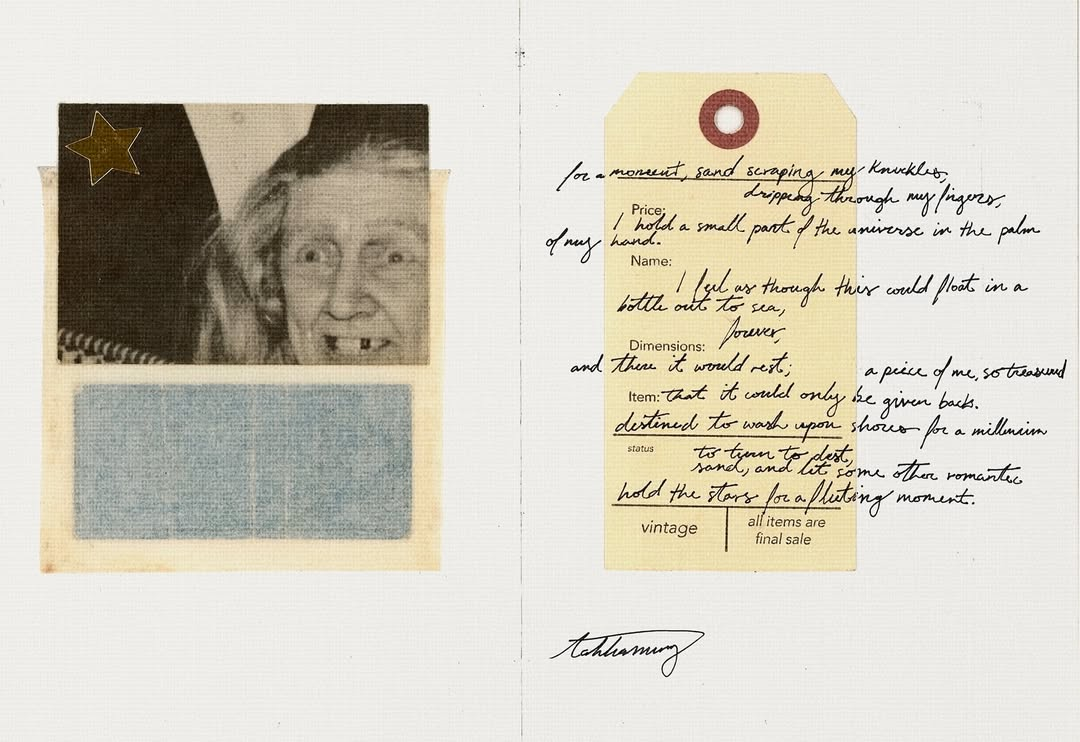 for a moment, sand scraping my knuckles,
dripping through my fingers,
Price:
I hold a small part of the universe in the palm
of my hand.
Name:
I feel as though this could float in a
bottle out to sea,
forever,
Dimensions:
and there it would rest; a piece of me, so treasured
Item: that it could only be given back.
destined to wash upon shores for a millenium
status
to turn to dust,
sand, and let some other romantic
hold the stars for a fleeting moment.
vintage
all items are
final sale